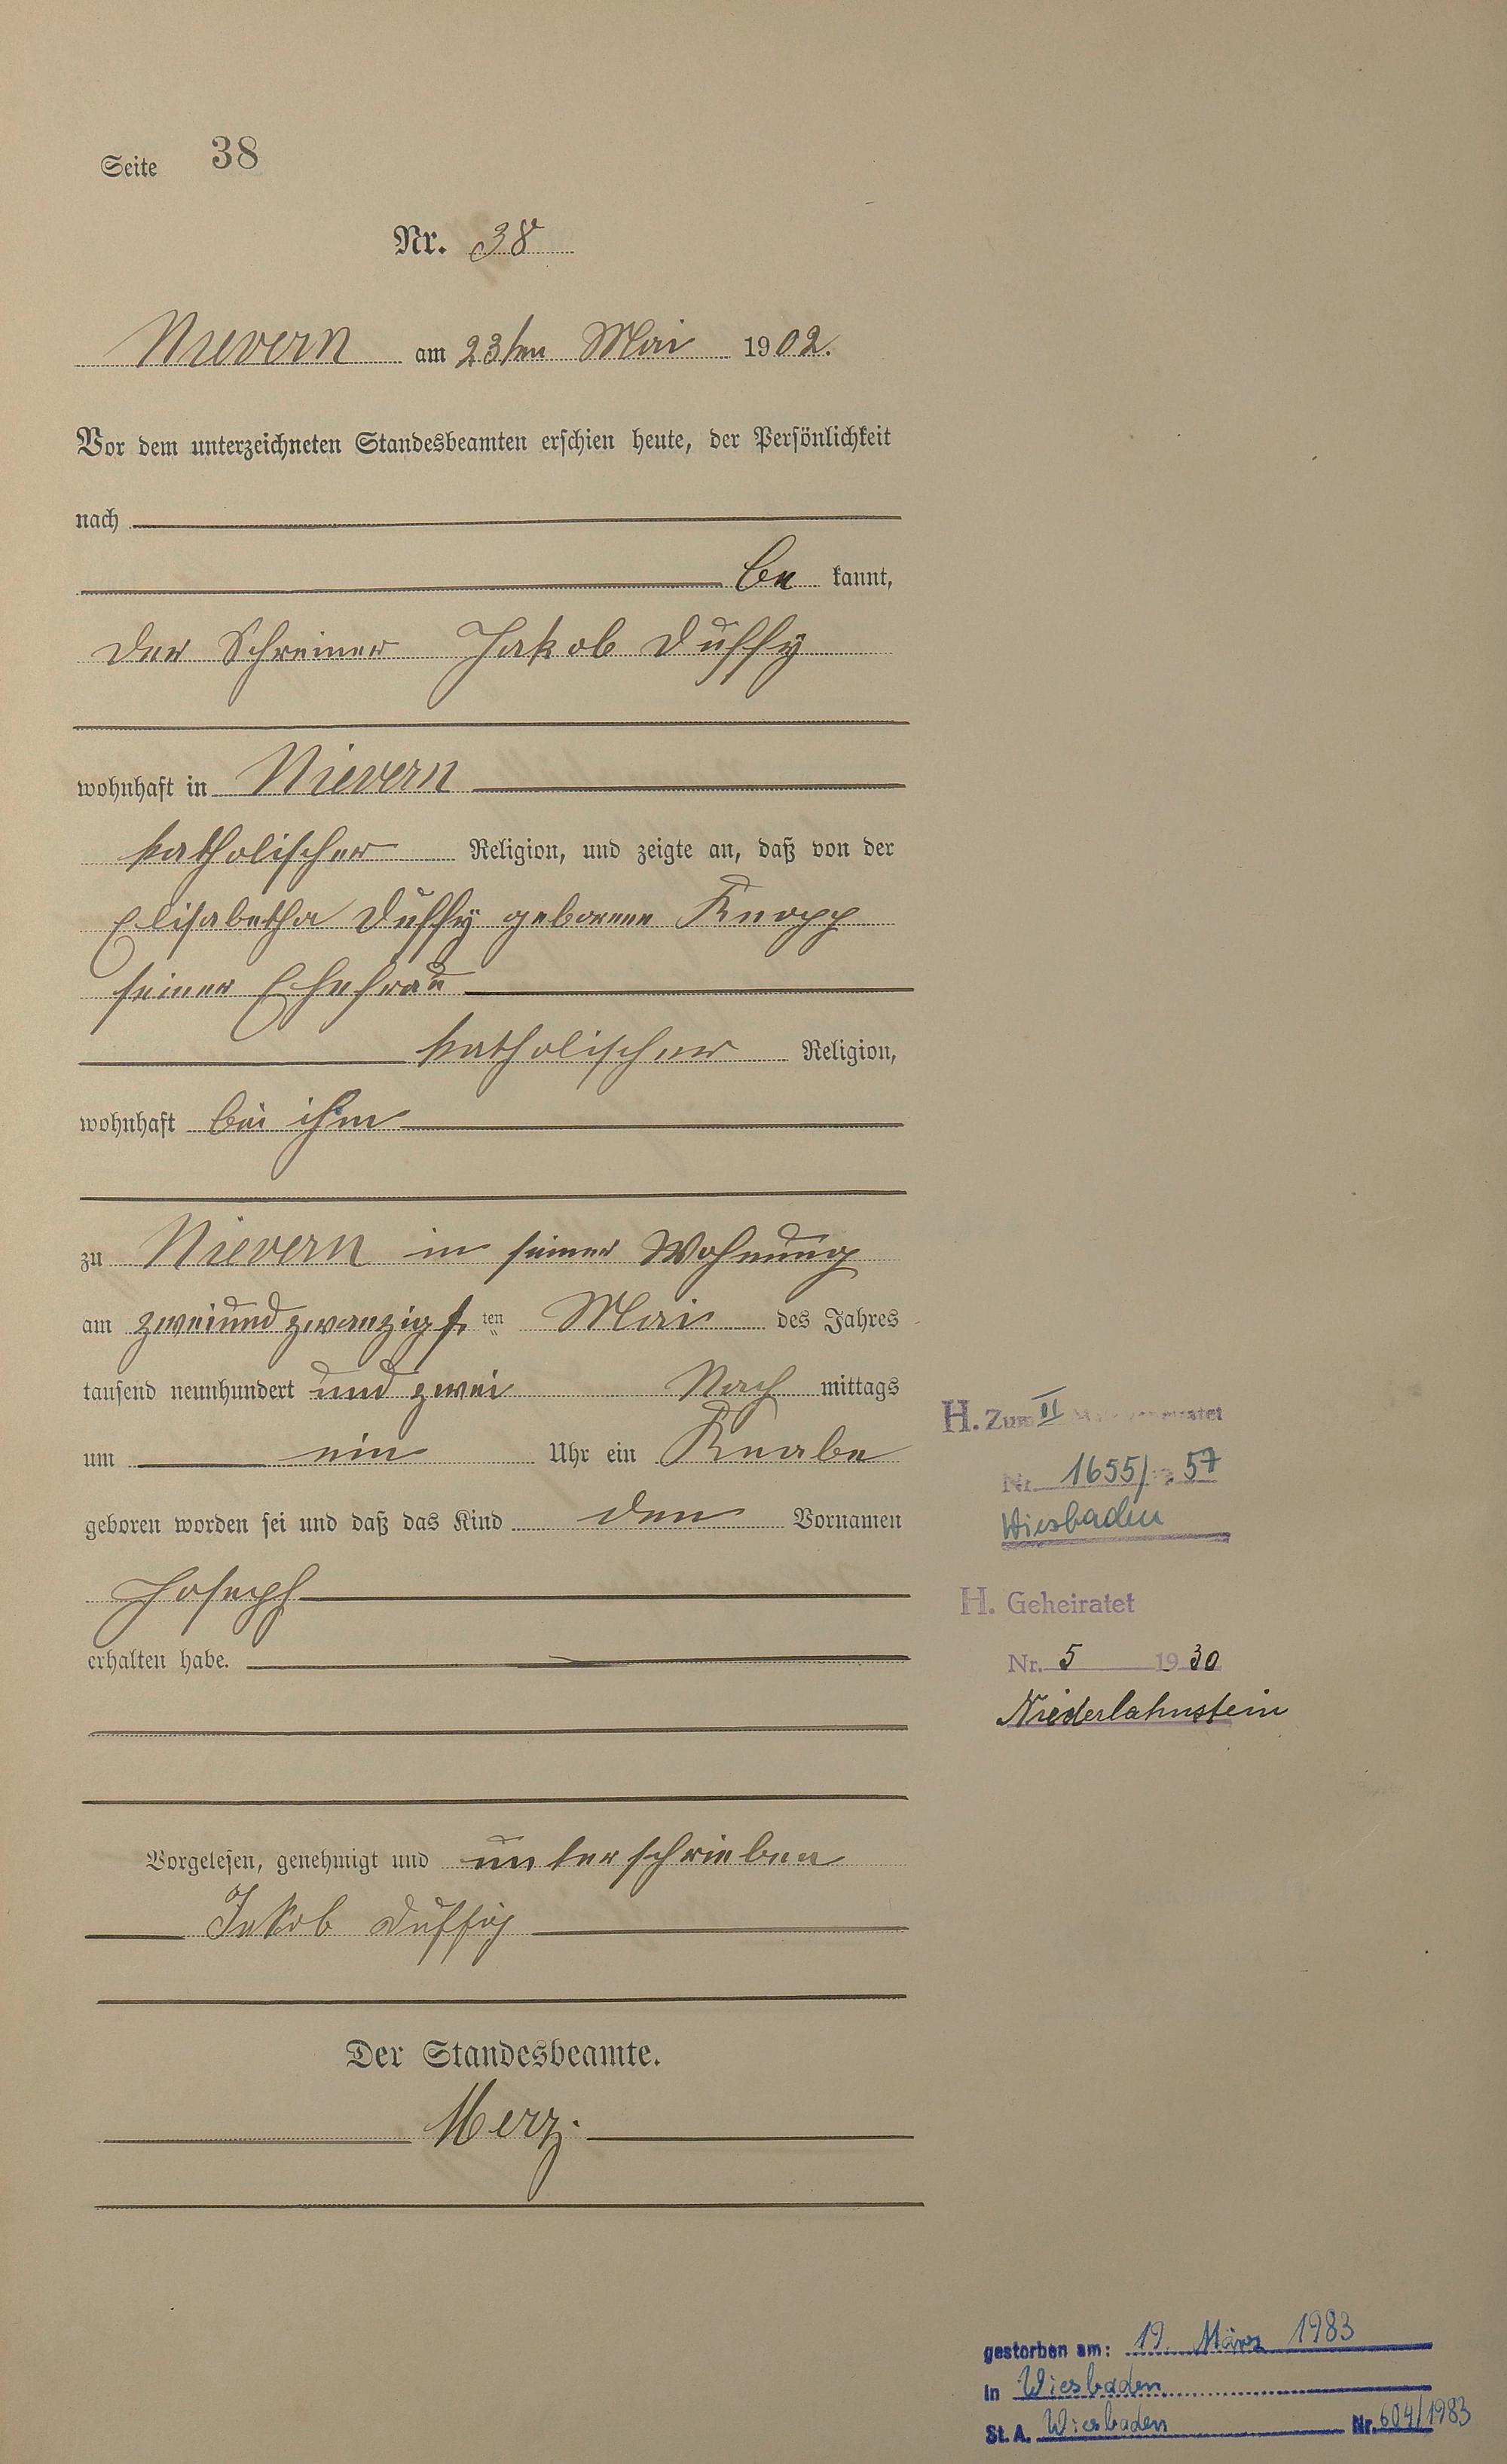 Seite 38
Nr. 38
Nievern am 23ten Mai 1902.
Vor dem unterzeichneten Standesbeamten erschien heute, der Persönlichkeit
nach
be kannt,
der Schreiner Jakob Duffy
wohnhaft in Nievern
katholischer Religion, und zeigte an, daß von der
Elisabetha Duffy geborene Knopp
seiner Ehefrau
katholischer Religion,
wohnhaft bei ihm
zu Nievern in seiner Wohnung
am zweiundzwanzigs ten Mai des Jahres
tausend neunhundert und zwei Nach mittags
um ein Uhr ein Knabe
geboren worden sei und daß das Kind den Vornamen
Joseph
erhalten habe.
Vorgelesen, genehmigt und unterschrieben
Jakob Duffy
Der Standesbeamte.
Merz.
H. Zum II Mal verheiratet
Nr. 1655/ 57
Wiesbaden
H. Geheiratet
Nr. 5 1930
Niederlahnstein
gestorben am: 19. März 1983
in Wiesbaden
St. A. Wiesbaden Nr. 604/1983